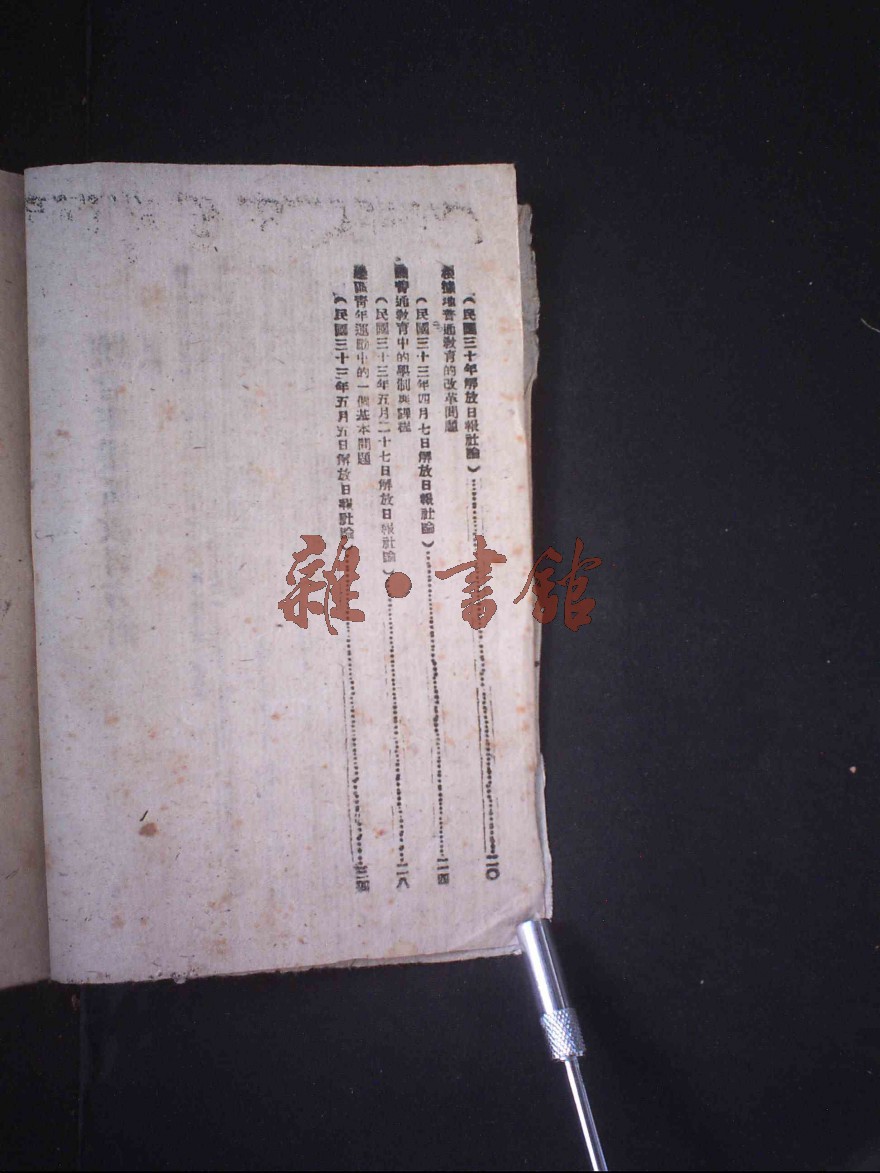 （民國三十年解放日報社論）……二〇
根據地普通教育的改革問題
（民國三十三年四月七日解放日報社論）……二四
普通教育中的學制與課程
（民國三十三年五月二十七日解放日報社論）……二八
邊區青年運動中的一個基本問題
（民國三十三年五月五日解放日報社論）……三四
雜·書館